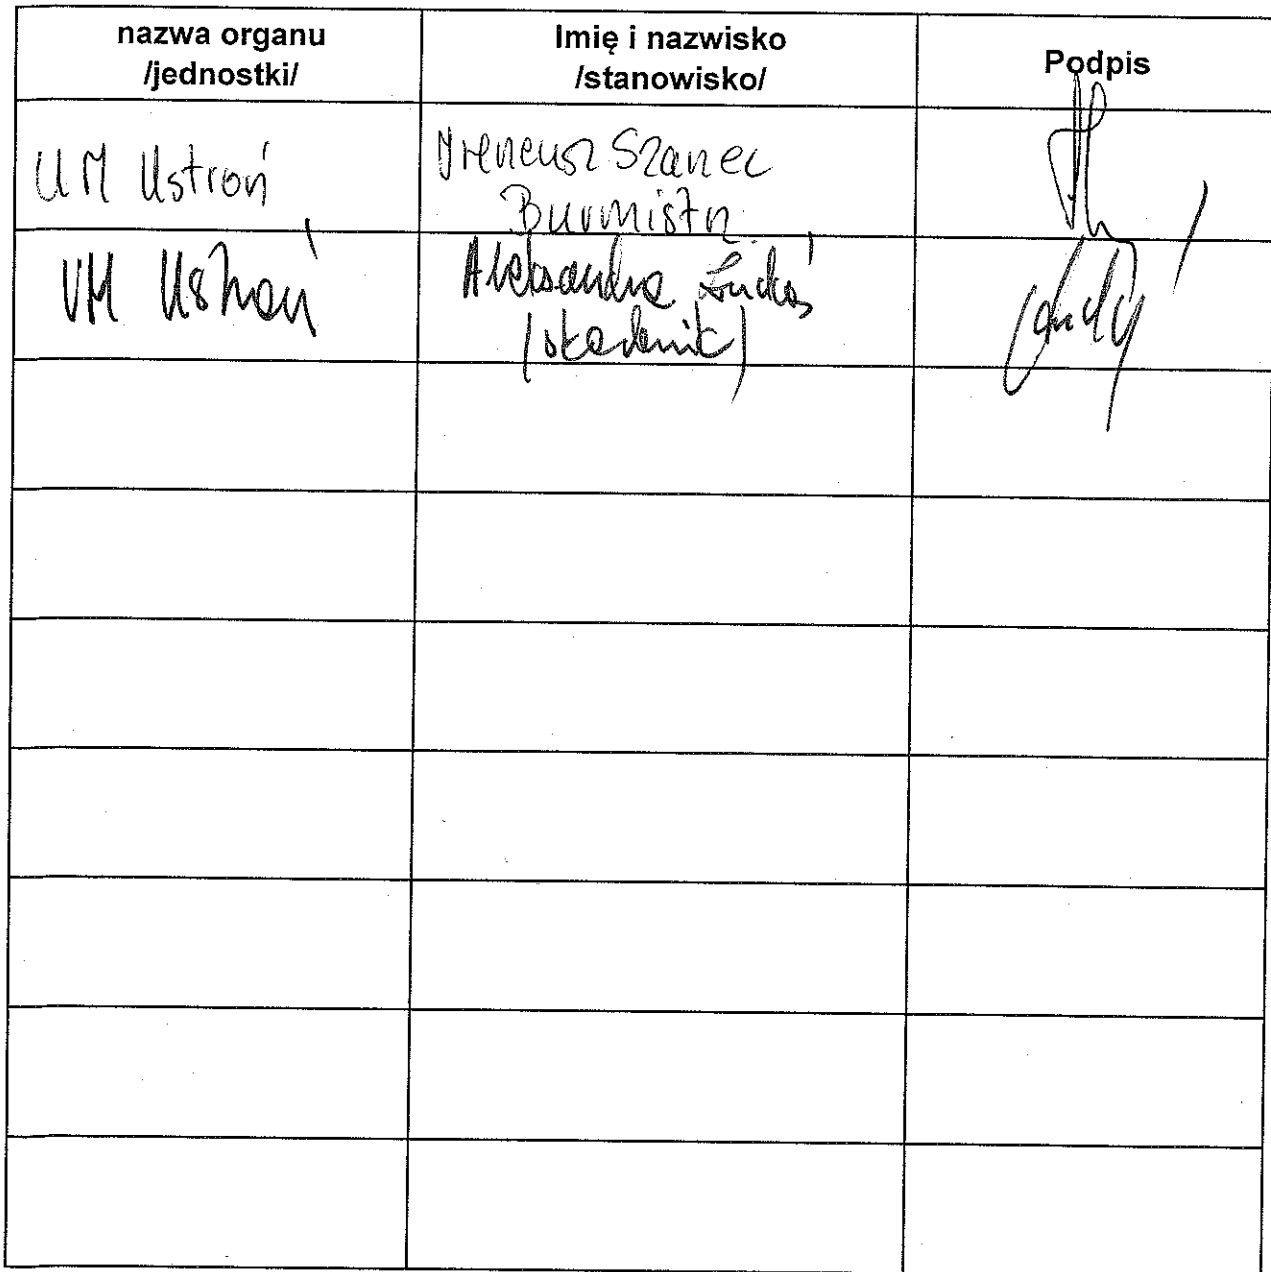 nazwa organu
/jednostki/
Imię i nazwisko
/stanowisko/
Podpis
UM Ustroń
Ireneusz Szarzec
Burmistrz
UM Ustroń
Aleksandra Łuckoś
(skarbnik)